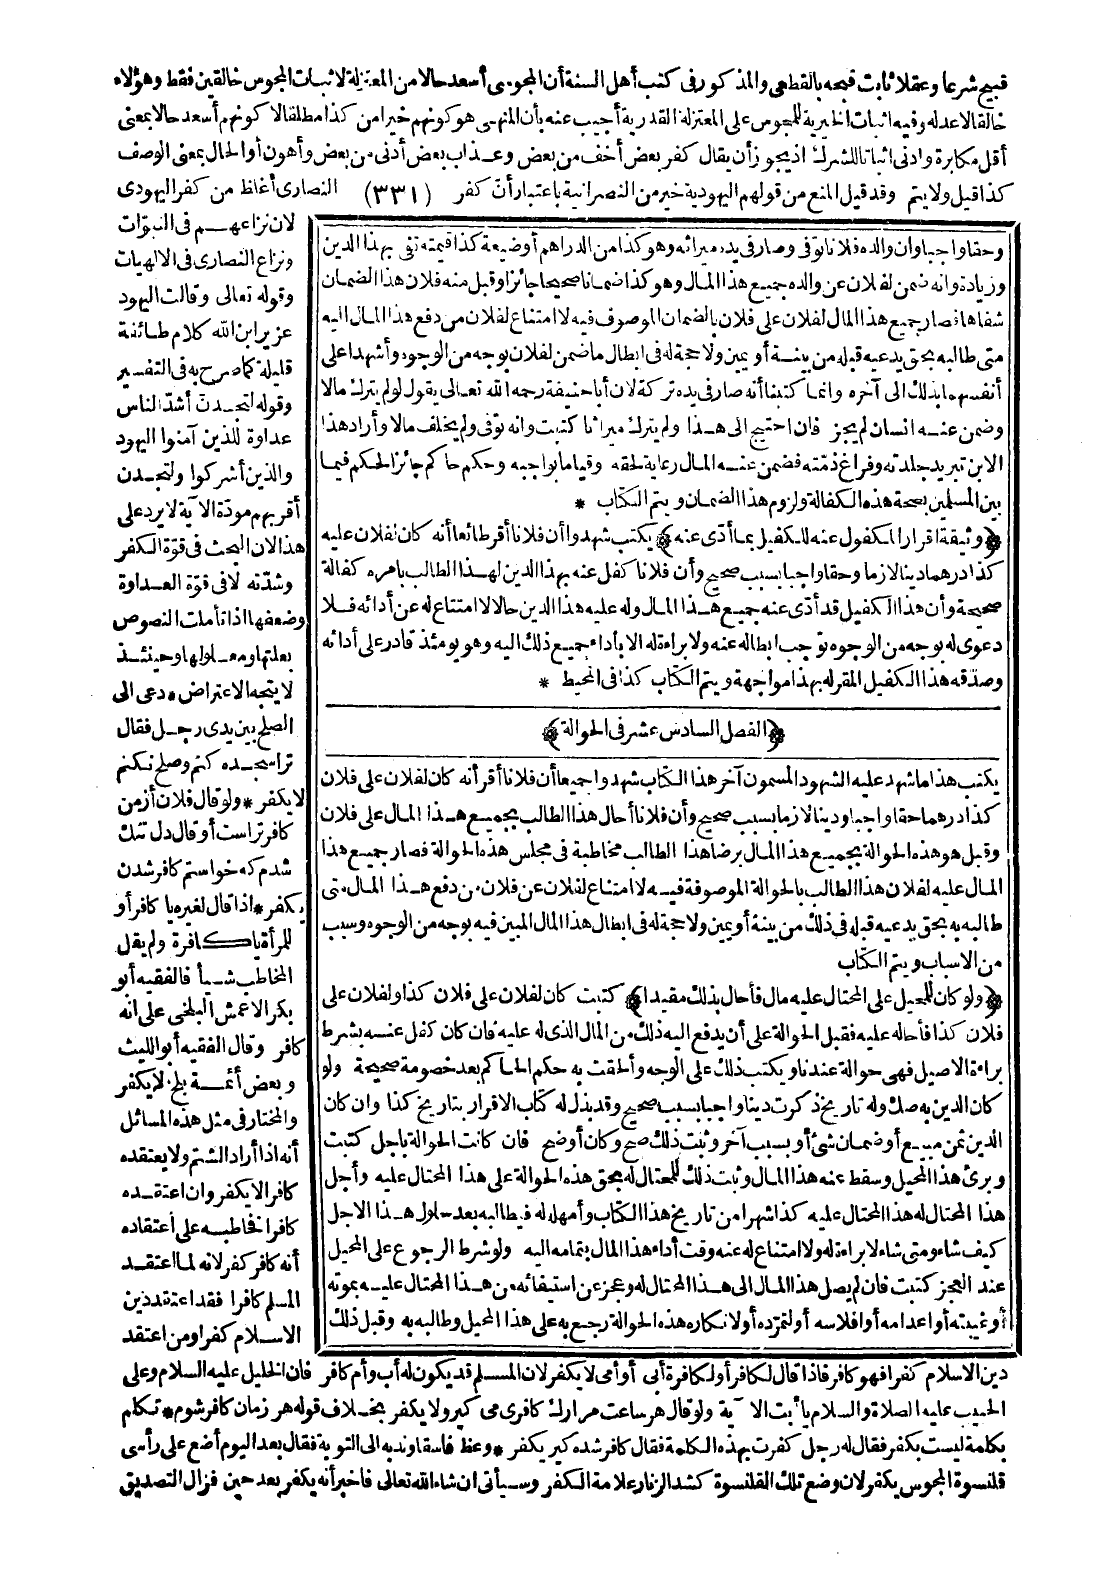 قبيح شرعا وعقلا ثابت قبحه بالقطعي والمذكور في كتب أهل السنة أن المجوسى أسعد حالا من المعتزلة لاثبات المجوس خالقين فقط وهؤلاء
خالقا لا عدله وفيه اثبات الخيرية للمجوس على المعتزلة القدرية أجيب عنه بأن المنهى هو كونهم خيرا من كذا مطلقا لا كونهم أسعد حالا بمعنى
أقل مكابرة وادنى اثباتا للشرك اذ يجوز أن يقال كفر بعض أخف من بعض وعذاب بعض أدنى من بعض وأهون أو الحال بمعنى الوصف
كذا قيل ولا يتم وقد قيل المنع من قولهم اليهودية خير من النصرانية باعتبار أن كفر (٣٣١) النصارى أغلظ من كفر اليهودى
لان نزاعهم فى النبوّات
ونزاع النصارى فى الالهيات
وقوله تعالى وقالت اليهود
عزير ابن الله كلام طائفة
قليلة كما صرح به فى التفسير
وقوله لتجدنّ أشدّ الناس
عداوة للذين آمنوا اليهود
والذين أشركوا ولتجدن
أقربهم مودّة الآية لا يرد على
هذا لان البحث فى قوّة الكفر
وشدّته لا فى قوّة العداوة
وضعفها اذا تأملت النصوص
بعلتها ومعلولها وحينئذ
لا يتجه الاعتراض * دعى الى
الصلح بين يدى رجل فقال
ترا سجده كنم وصلح نكنم
لا يكفر * ولو قال فلان أز من
كافر تراست أو قال دل تنك
شدم كه خواستم كافر شدن
يكفر * اذا قال لغيره يا كافر أو
للمرأة يا كافرة ولم يقل
المخاطب شيأ فالفقيه أبو
بكر الاعمش البلخى على انه
كافر وقال الفقيه أبو الليث
وبعض أئمة بلخ لا يكفر
والمختار فى مثل هذه المسائل
أنه اذا أراد الشتم ولا يعتقده
كافرا لا يكفر وان اعتقده
كافرا فخاطبه على اعتقاده
أنه كافر كفر لانه لما اعتقد
المسلم كافرا فقد اعتقد دين
الاسلام كفرا ومن اعتقد
وحقا واجبا وان والده فلانا توفى وصار فى يده ميراثه وهو كذا من الدراهم أو ضيعة كذا قيمته تفى بهذا الدين
وزيادة وانه ضمن لفلان عن والده جميع هذا المال وهو كذا ضمانا صحيحا جائزا وقبل منه فلان هذا الضمان
شفاها فصار جميع هذا المال لفلان على فلان بالضمان الموصوف فيه لا امتناع لفلان من دفع هذا المال اليه
متى طالبه بحق يدعيه قبله من بينة أو يمين ولا حجة له فى ابطال ما ضمن لفلان بوجه من الوجوه وأشهدا على
أنفسهما بذلك الى آخره وانما كتبنا أنه صار فى يده تركة لان أبا حنيفة رحمه الله تعالى يقول لو لم يترك مالا
وضمن عنه انسان لم يجز فان احتيج الى هذا ولم يترك ميراثا كتبت وانه توفى ولم يخلف مالا وأراد هذا
الابن تبريد جلدته وفراغ ذمّته فضمن عنه المال رعاية لحقه وقياما بواجبه وحكم حاكم جائز الحكم فيما
بين المسلمين بصحة هذه الكفالة ولزوم هذا الضمان ويتم الكتاب *
﴿وثيقة اقرار المكفول عنه للكفيل بما أدّى عنه﴾ يكتب شهدوا أن فلانا أقر طائعا أنه كان لفلان عليه
كذا درهما دينا لازما وحقا واجبا بسبب صحيح وأن فلانا كفل عنه بهذا الدين لهذا الطالب بامره كفالة
صحيحة وأن هذا الكفيل قد أدّى عنه جميع هذا المال وله عليه هذا الدين حالا لا امتناع له عن أدائه فلا
دعوى له بوجه من الوجوه توجب ابطاله عنه ولا براءة له الا بأداء جميع ذلك اليه وهو يومئذ قادر على أدائه
وصدّقه هذا الكفيل المقر له بهذا مواجهة ويتم الكتاب كذا فى المحيط *
﴿الفصل السادس عشر فى الحوالة﴾
يكتب هذا ما شهد عليه الشهود المسمون آخر هذا الكتاب شهدوا جميعا أن فلانا أقر أنه كان لفلان على فلان
كذا درهما حقا واجبا ودينا لازما بسبب صحيح وأن فلانا أحال هذا الطالب بجميع هذا المال على فلان
وقبل هو هذه الحوالة بجميع هذا المال برضا هذا الطالب مخاطبة فى مجلس هذه الحوالة فصار جميع هذا
المال عليه لفلان هذا الطالب بالحوالة الموصوفة فيه لا امتناع لفلان عن فلان من دفع هذا المال متى
طالبه به بحق يدعيه قبله فى ذلك من بينة أو يمين ولا حجة له فى ابطال هذا المال المبين فيه بوجه من الوجوه وسبب
من الاسباب ويتم الكتاب
﴿ولو كان للمحيل على المحتال عليه مال فأحال بذلك مقيدا﴾ كتبت كان لفلان على فلان كذا ولفلان على
فلان كذا فأحاله عليه فقبل الحوالة على أن يدفع اليه ذلك من المال الذى له عليه فان كان كفل عنه بشرط
براءة الاصيل فهى حوالة عندنا ويكتب ذلك على الوجه وألحقت به حكم الحاكم بعد خصومة صحيحة ولو
كان الدين به صك وله تاريخ ذكرت دينا واجبا بسبب صحيح وقد بذل له كتاب الاقرار بتاريخ كذا وان كان
الدين ثمن مبيع أو ضمان شئ أو بسبب آخر وثبت ذلك صح وكان أوضح فان كانت الحوالة بأجل كتبت
وبرئ هذا المحيل وسقط عنه هذا المال وثبت ذلك للمحتال له بحق هذه الحوالة على هذا المحتال عليه وأجل
هذا المحتال له هذا المحتال عليه كذا شهرا من تاريخ هذا الكتاب وأمهله له فيطالبه بعد حلول هذا الاجل
كيف شاء ومتى شاء لا براءة له ولا امتناع له عنه وقت أداء هذا المال بتمامه اليه ولو شرط الرجوع على المحيل
عند العجز كتبت فان لم يصل هذا المال الى هذا المحتال له وعجز عن استيفائه من هذا المحتال عليه بموته
أو غيبته أو اعدامه أو افلاسه أو لتمرّده أو لانكاره هذه الحوالة رجع به على هذا المحيل وطالبه به وقبل ذلك
دين الاسلام كفرا فهو كافر فاذا قال لكافر أو لكافرة أبى أو أمى لا يكفر لان المسلم قد يكون له أب وأم كافر فان الخليل عليه السلام وعلى
الحبيب عليه الصلاة والسلام يا أبت الآية ولو قال هر ساعت مرا رك كافرى مى كيرد لا يكفر بخلاف قوله هر زمان كافر شوم * تكلم
بكلمة ليست بكفر فقال له رجل كفرت بهذه الكلمة فقال كافر شده كير يكفر * وعظ فاسقا وندبه الى التوبة فقال بعد اليوم أضع على رأسى
قلنسوة المجوس يكفر لان وضع تلك القلنسوة كشد الزنار علامة الكفر وسيأتى ان شاء الله تعالى فاخبر أنه يكفر بعد حين فزال التصديق